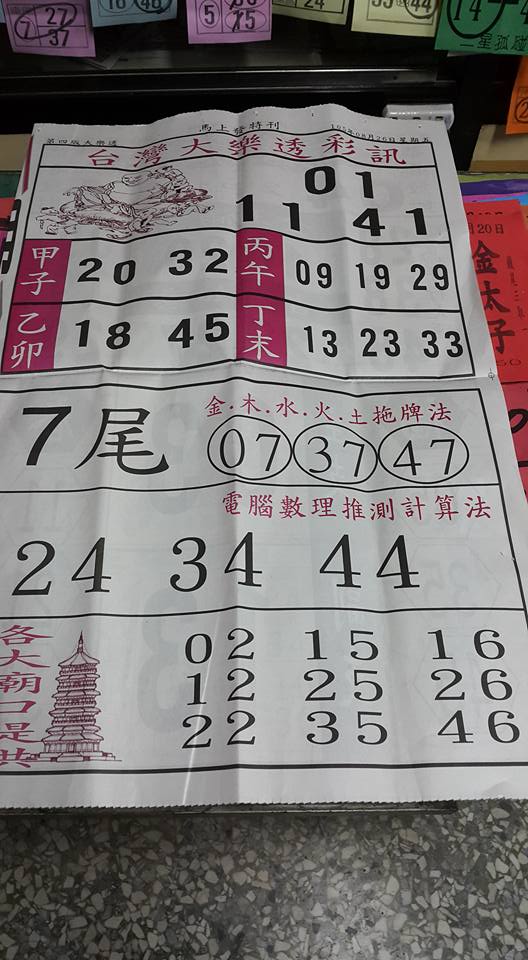 7 27 37
5 15
24
44
14
二星孤碰
馬上發特刊
第四版大樂透
105年08月26日星期五
台灣大樂透彩訊
01
11 41
甲子 20 32 丙午 09 19 29
乙卯 18 45 丁未 13 23 33
7尾
金.木.水.火.土拖牌法
07 37 47
電腦數理推測計算法
24 34 44
各大廟口是共
02 15 16
12 25 26
22 35 46
月20日
金太子